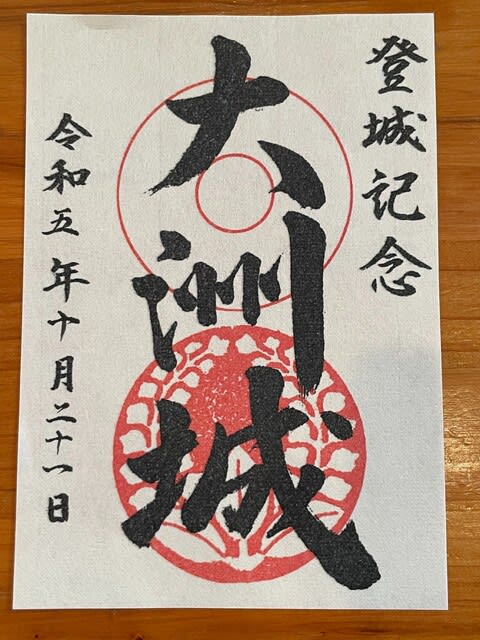 登城記念
大洲城
令和五年十月二十一日